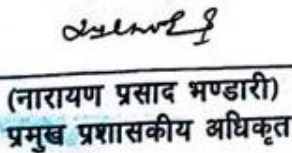 (नारायण प्रसाद भण्डारी)
प्रमुख प्रशासकीय अधिकृत